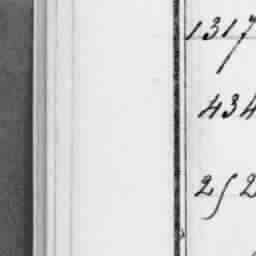 1317
434
252